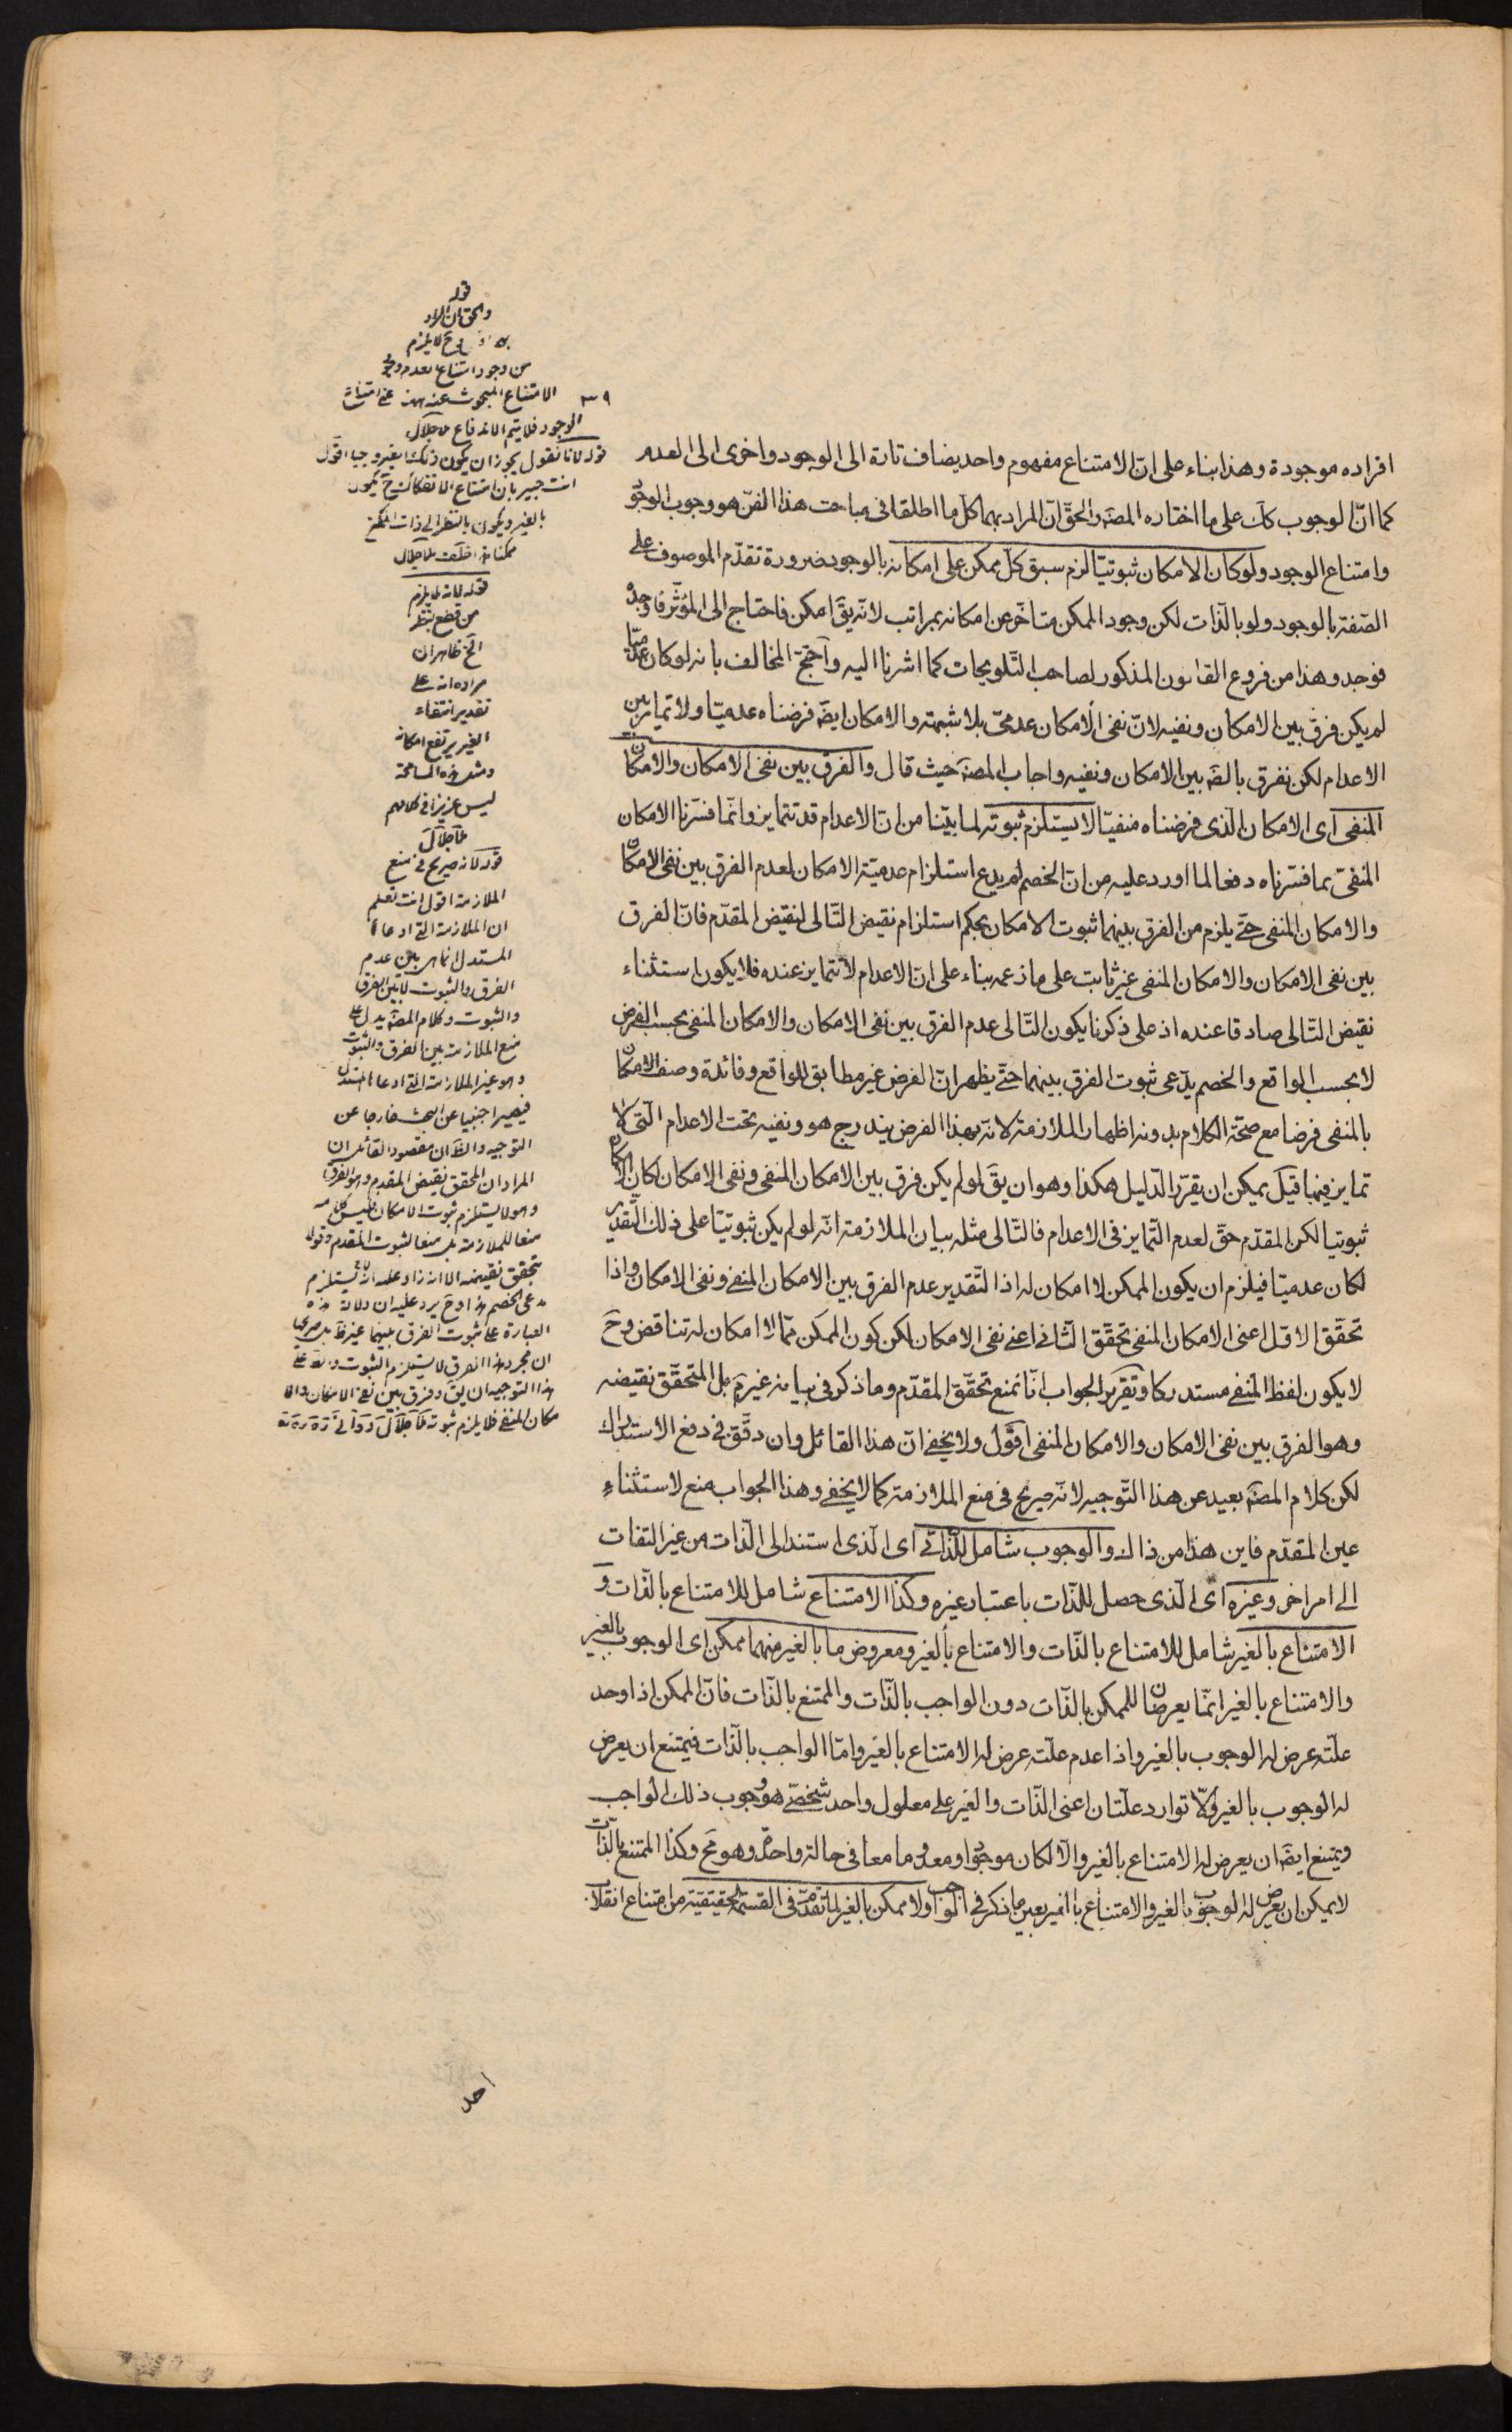 افراده موجودة وهذا بناء على انّ الامتناع مفهوم واحد يضاف تارة الى الوجود واخرى الى العدم
كما انّ الوجوب كك على ما اختاره المصَ والحقّ انّ المراد بهما كل ما اطلقا فى مباحث هذا الفنّ هو وجوب الوجود
وامتناع الوجود ولو كان الامكان ثبوتيّا لزم سبق كلّ ممكن على امكانه بالوجود ضرورة تقدّم الموصوف على
الصّفة بالوجود ولو بالذّات لكن وجود الممكن متاخّر عن امكانه بمراتب لانّه يقَ امكن فاحتاج الى المؤثّر فاوجده
فوجد وهذا من فروع القانون المذكور لصاحب التّلويحات كما اشرنا اليه واحتجّ المخالف بانه لو كان عدميّا
لم يكن فرق بين الامكان ونفيه لانّ نفى الامكان عدمىّ بلا شبهة والامكان ايضَ فرضناه عدميّا ولا تمايز بين
الاعدام لكن نفرق بالضَ بين الامكان ونفيه واجاب المصَ حيث قال والفرق بين نفى الامكان والامكان
المنفى اى الامكان الّذى فرضناه منفيّا لا يستلزم ثبوته لما بيّنا من انّ الاعدام قد تتمايز وانّما فسّرنا الامكان
المنفىّ بما فسّرناه دفعا لما اورد عليه من انّ الخصم لم يدع استلزام عدميّة الامكان لعدم الفرق بين نفى الامكان
والامكان المنفى حتّى يلزم من الفرق بينهما ثبوت الامكان بحكم استلزام نقيض التّالى لنقيض المقدّم فانّ الفرق
بين نفى الامكان والامكان المنفى غير ثابت على ما زعمه بناء على انّ الاعدام لا تتمايز عنده فلا يكون استثناء
نقيض التّالى صادقا عنده اذ على ذكرنا يكون التّالى عدم الفرق بين نفى الامكان والامكان المنفى بحسب الفرض
لا بحسب الواقع والخصم يدّعى ثبوت الفرق بينهما حتّى يظهر انّ الفرض غير مطابق للواقع وفائدة وصف الامكان
بالمنفى فرضا مع صحّة الكلام بدونه اظهار الملازمة لانّه بهذا الفرض يندرج هو ونفيه تحت الاعدام الّتى لا
تمايز فيها قيل يمكن ان يقرّر الدّليل هكذا وهو ان يقَ لو لم يكن فرق بين الامكان المنفى ونفى الامكان لكان الامكان
ثبوتيا لكن المقدّم حقّ لعدم التّمايز فى الاعدام فالتّالى مثله بيان الملازمة انّه لو لم يكن ثبوتيّا على ذلك التّقدير
لكان عدميّا فيلزم ان يكون الممكن لا امكان له اذا التّقدير عدم الفرق بين الامكان المنفى ونفى الامكان واذا
تحقّق الاوّل اعنى الامكان المنفى تحقّق الثّانى اعنى نفى الامكان لكن كون الممكن ممّا لا امكان له تناقض وحَ
لا يكون لفظ المنفى مستدركا وتقرير الجواب انّا نمنع تحقّق المقدّم وما ذكر فى بيانه غير تمّ بل المتحقّق نقيضه
وهو الفرق بين نفى الامكان والامكان المنفى اقول ولا يخفى انّ هذا القائل وان دقّق فى دفع الاستدراك
لكن كلام المصَ بعيد عن هذا التّوجيه لانّه صريح فى منع الملازمة كما لا يخفى وهذا الجواب منع لاستثناء
عين المقدّم فاين هذا من ذاك والوجوب شامل للذّاتى اى الّذى استند الى الذّات من غير التفات
الى امر اخر وغيره اى الّذى حصل للذّات باعتبار غيره وكذا الامتناع شامل للامتناع بالذّات و
الامتناع بالغير شامل للامتناع بالذّات والامتناع بالغير ومعروض ما بالغير منهما ممكن اى الوجوب بالغير
والامتناع بالغير انّما يعرضان للممكن بالذّات دون الواجب بالذّات والممتنع بالذّات فانّ الممكن اذا وجد
علّته عرض له الوجوب بالغير واذا عدم علّته عرض له الامتناع بالغير وامّا الواجب بالذّات فيمتنع ان يعرض
له الوجوب بالغير والّا توارد علّتان اعنى الذّات والغير على معلول واحد شخصىّ هو وجوب ذلك الواجب
ويمتنع ايضَ ان يعرض له الامتناع بالغير والّا لكان موجودا ومعدوما معا فى حالة واحدة وهو مَح وكذا الممتنع بالذّات
لا يمكن ان يعرض له الوجوب بالغير والامتناع بالغير بعين ما ذكر فى الواجب ولا ممكن بالغير لما تقدّم فى القسمة الحقيقيّة من امتناع انقلاب
٣٩
قوله
والحق ان المراد
لا يلزم
من وجود امتناع العدم وجود
الامتناع المبحوث عنه هنا اعنى امتناع
الوجود فلا يتم الاندفاع ملا جلال
قوله لانا نقول يجوز ان يكون ذلك الغير واجبا اقول
انت خبير بان امتناع الانفكاك ح يكون
بالغير ويكون بالنظر الى ذات الممكن
ممكنا هذا خلف ملا جلال
قوله لانه لا يلزم
من قطع النظر
الخ ظاهر ان
مراده انه على
تقدير انتفاء
الغير يرتفع امكانه
ومثل هذه المسامحة
ليس عزيزا فى كلامهم
ملا جلال
قوله لانه صريح فى منع
الملازمة اقول انت تعلم
ان الملازمة التى ادعاها
المستدل انما هى بين عدم
الفرق والثبوت لا بين الفرق
والثبوت وكلام المصَ يدل على
منع الملازمة بين الفرق والثبوت
وهو غير الملازمة التى ادعاها المستدل
فيصير اجنبيا عن البحث خارجا عن
التوجيه والظَ ان مقصود القائل ان
المراد ان المتحقق نقيض المقدم وهو الفرق
وهو لا يستلزم ثبوت الامكان فليس كلامه
منعا للملازمة بل منعا لثبوت المقدم وقولا
بتحقق نقيضه الا انه زاد عليه انه لا يستلزم
مدعى الخصم هذا وحَ يرد عليه ان دلالة هذه
العبارة على ثبوت الفرق بينهما غير ظَ بل صريحها
ان مجرد هذا الفرق لا يستلزم الثبوت والظَ على
هذا التوجيه ان يقَ وفرق بين نفى الامكان والا
مكان المنفى فلا يلزم ثبوته ملا جلال دوانى
احد